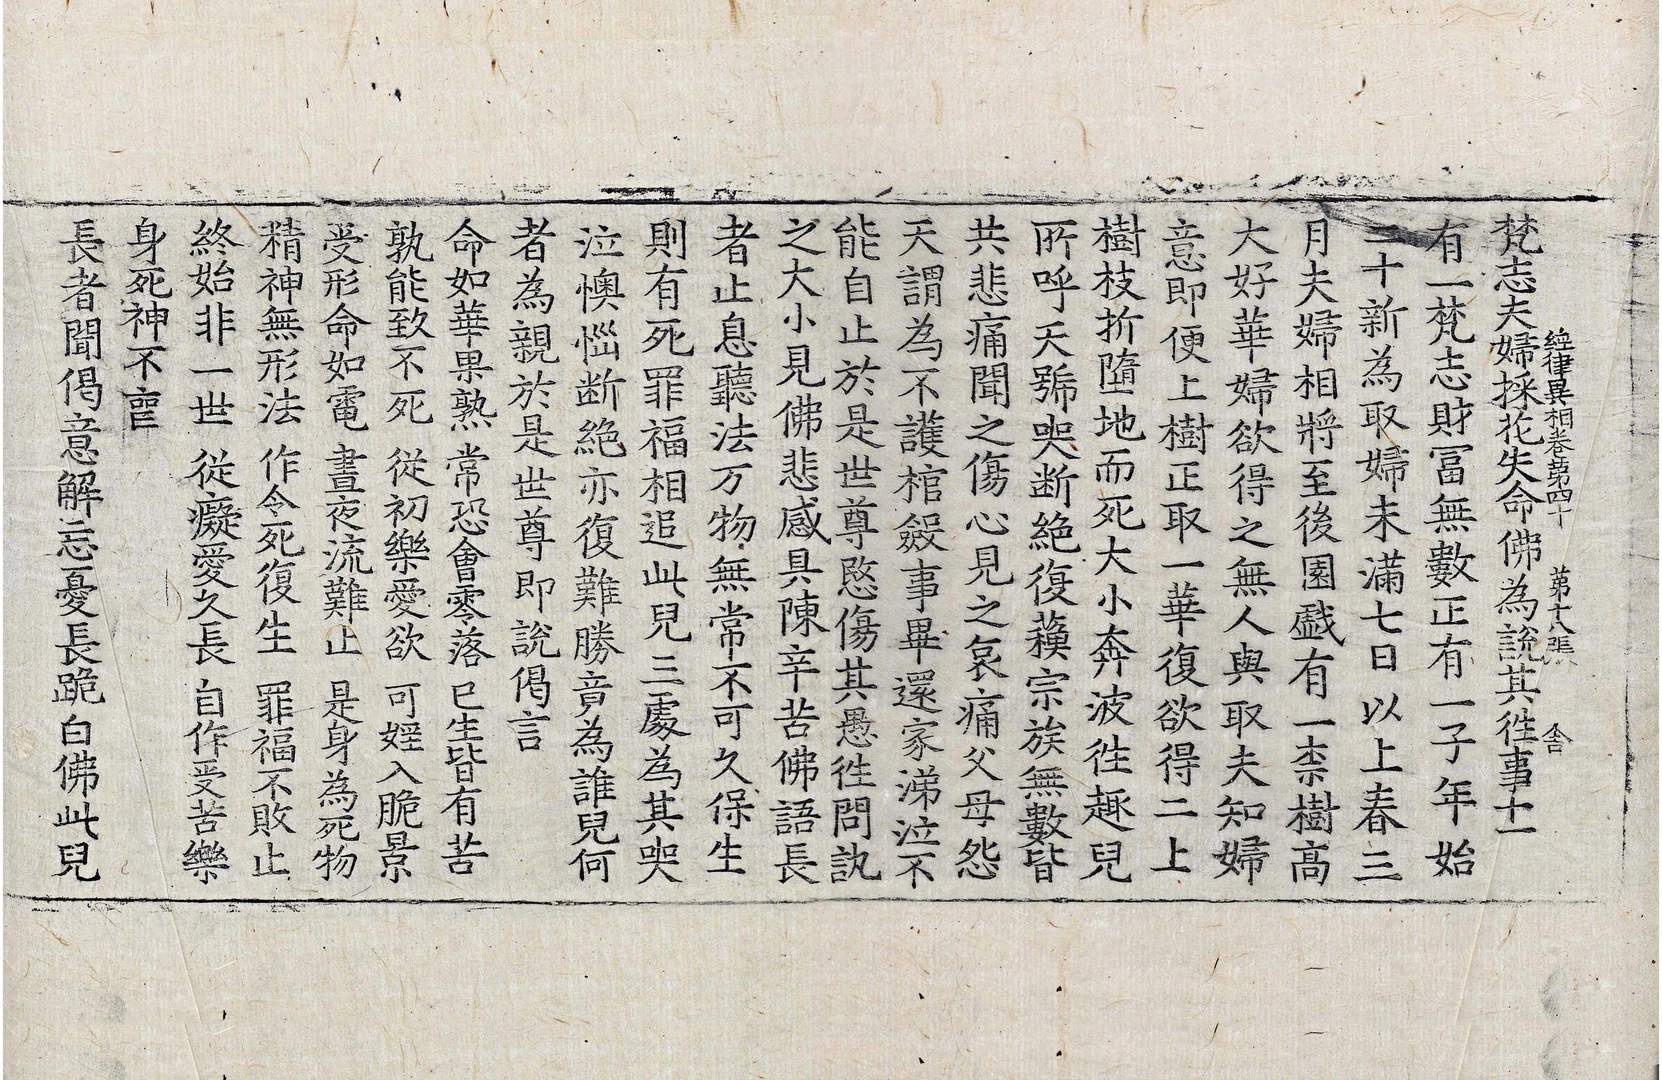 經律異相卷第四十 第十八張 舍
梵志夫婦採花失命佛為說其徃事十一
有一梵志財冨無數正有一子年始
二十新為取婦未滿七日以上春三
月夫婦相將至後園戱有一柰樹高
大好華婦欲得之無人與取夫知婦
意即便上樹正取一華復欲得二上
樹枝折墮地而死大小奔波徃趣兒
所呼天號哭断絶復蘓宗族無數皆
共悲痛聞之傷心見之哀痛父母怨
天謂為不護棺斂事畢還家涕泣不
能自止於是世尊愍傷其愚徃問訊
之大小見佛悲感具陳辛苦佛語長
者止息聽法万物無常不可久保生
則有死罪福相追此兒三處為其哭
泣懊惱断絶亦復難勝竟為誰兒何
者為親於是世尊即說偈言
命如華果熟 常恐會零落 已生皆有苦
孰能致不死 從初樂愛欲 可婬入脆景
受形命如電 晝夜流難止 是身為死物
精神無形法 作令死復生 罪福不敗止
終始非一世 從癡愛久長 自作受苦樂
身死神不䘮
長者聞偈意解忘憂長跪白佛此兒